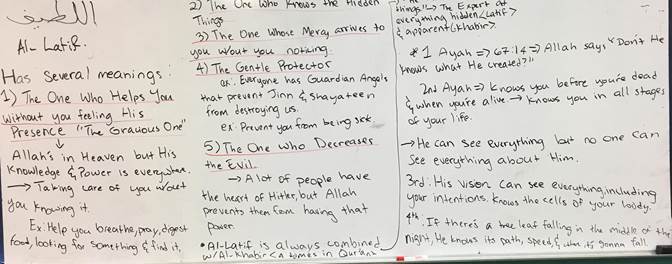 اللطيف
Al-Latif.
Has Several meanings:
1) The One Who Helps You
Without you feeling His
Presence "The Gracious One"
Allah's in Heaven but His
Knowledge & Power is everywhere.
→ Taking care of you w/out
you knowing it.
Ex: Help you breathe, pray, digest
food, looking for something & find it,
2) The One Who Knows the Hidden
Things
3) The One Whose Mercy arrives to
you w/out you noticing
4) The Gentle Protector
ex: Everyone has Guardian Angels
that prevent Jinn & Shayateen
from destroying us.
ex: Prevent you from being sick.
5) The One Who Decreases
the Evil.
→ A lot of people have
the heart of Hitler, but Allah
prevents them from having that
power.
• Al-Latif is always combined
w/ Al-Khabir < n times in Qur'an>
things" → The Expert at
everything hidden <Latif>
& apparent <Khabir>.
* 1 Ayah => 67:14 => Allah says "Don't He
knows what He created?"
2nd Ayah => Knows you before you're dead
& when you're alive → Knows you in all stages
of your life.
→ He can see everything but no one can
see everything about Him.
3rd: His vision can see everything, including
your intentions. Knows the cells of your body.
4th: If there's a tree leaf falling in the middle of the
night, He knows its path, speed, & when its gonna fall.